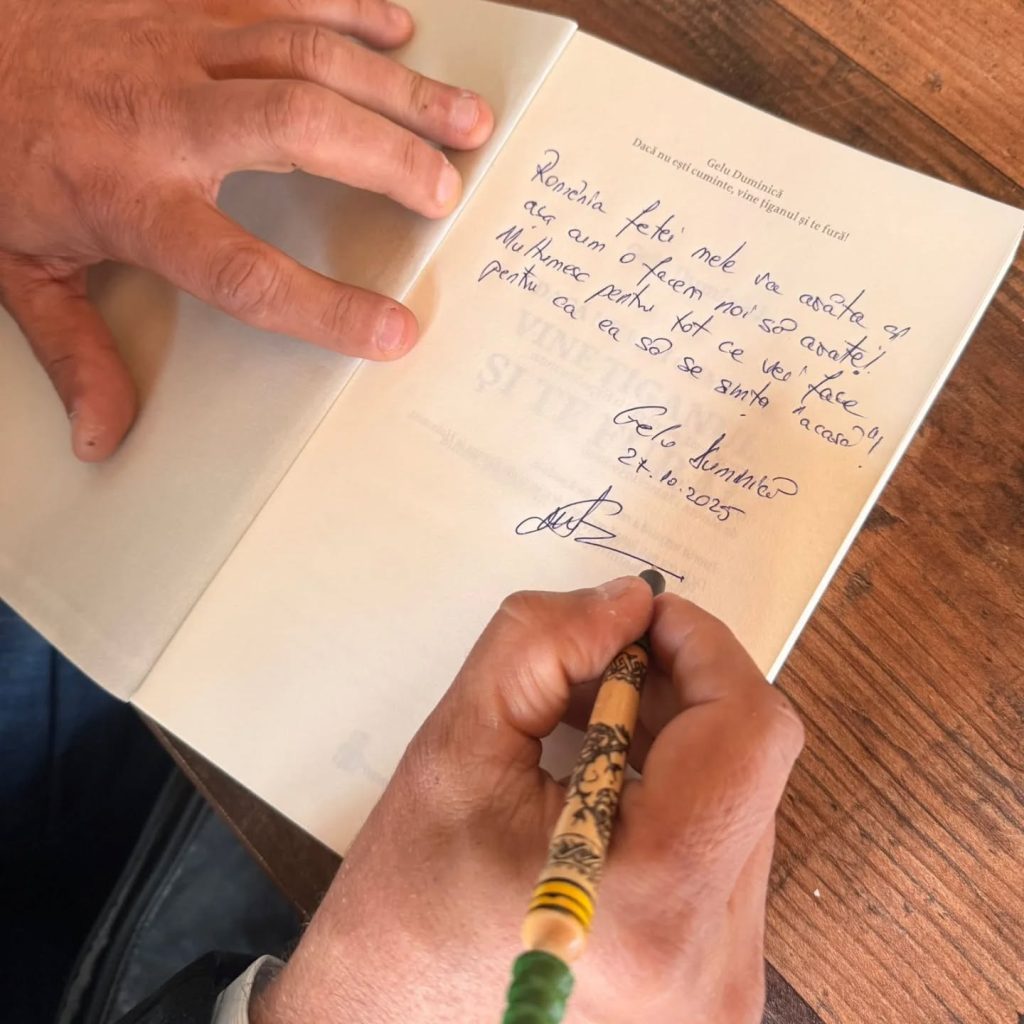 Gelu Duminică
Dacă nu ești cuminte, vine țiganul și te fură!
România fetei mele va arăta și
așa cum o facem noi să arate!
Mulțumesc pentru tot ce vei face
pentru ca ea să se simtă "acasă"!
Gelu Duminică
27.10.2025
VINE ȚIGANUL
ȘI TE